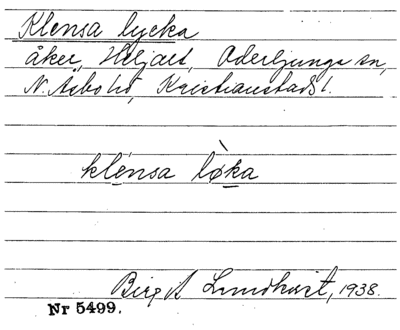 Klensa lycka
åker, Heljalt, Oderljunga sn,
N. Åsbo hd, Kristianstads l.
klénsa lø̀ka
Birgit Lundkvist, 1938.
Nr 5499.